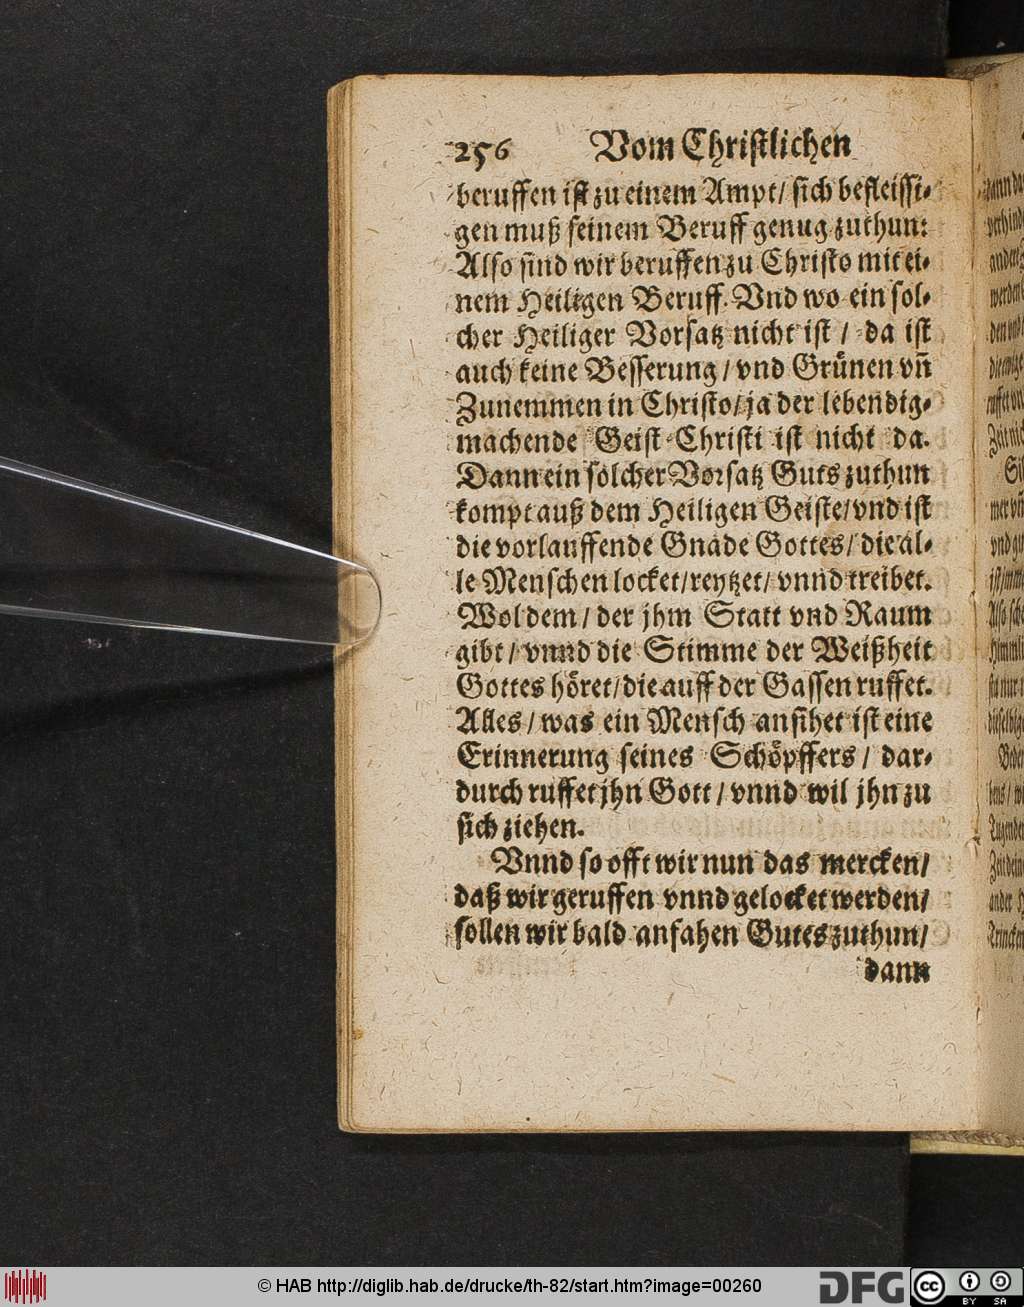 256 Vom Chriſtlichen
beruffen iſt zu einem Ampt/ ſich befleiſſi⸗
gen muß ſeinem Beruff genug zuthun:
Alſo ſind wir beruffen zu Chriſto mit ei⸗
nem Heiligen Beruff. Vnd wo ein ſol⸗
cher Heiliger Vorſatz nicht iſt / da iſt
auch keine Beſſerung/ vnd Gruͤnen vn̄
Zunemmen in Chriſto/ ja der lebendig⸗
machende Geiſt Chriſti iſt nicht da.
Dann ein ſolcher Vorſatz Guts zuthun
kompt auß dem Heiligen Geiſte/ vnd iſt
die vorlauffende Gnade Gottes/ die al⸗
le Menſchen locket/ reytzet/ vnnd treibet.
Wol dem/ der jhm Statt vnd Raum
gibt/ vnnd die Stimme der Weißheit
Gottes hoͤret/ die auff der Gaſſen ruffet.
Alles/ was ein Menſch anſihet iſt eine
Erinnerung ſeines Schoͤpffers/ dar⸗
durch ruffet jhn Gott/ vnnd wil jhn zu
ſich ziehen.
Vnnd ſo offt wir nun das mercken/
daß wir geruffen vnnd gelocket werden/
ſollen wir bald anfahen Gutes zuthun/
dann
© HAB http://diglib.hab.de/drucke/th-82/start.htm?image=00260
DFG
cc BY SA